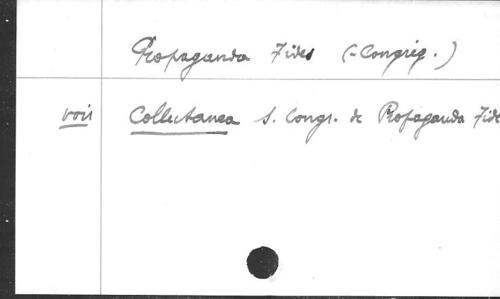 Propaganda Fides (-Congrég.)
voir Collectanea S. Congr. de Propaganda Fide